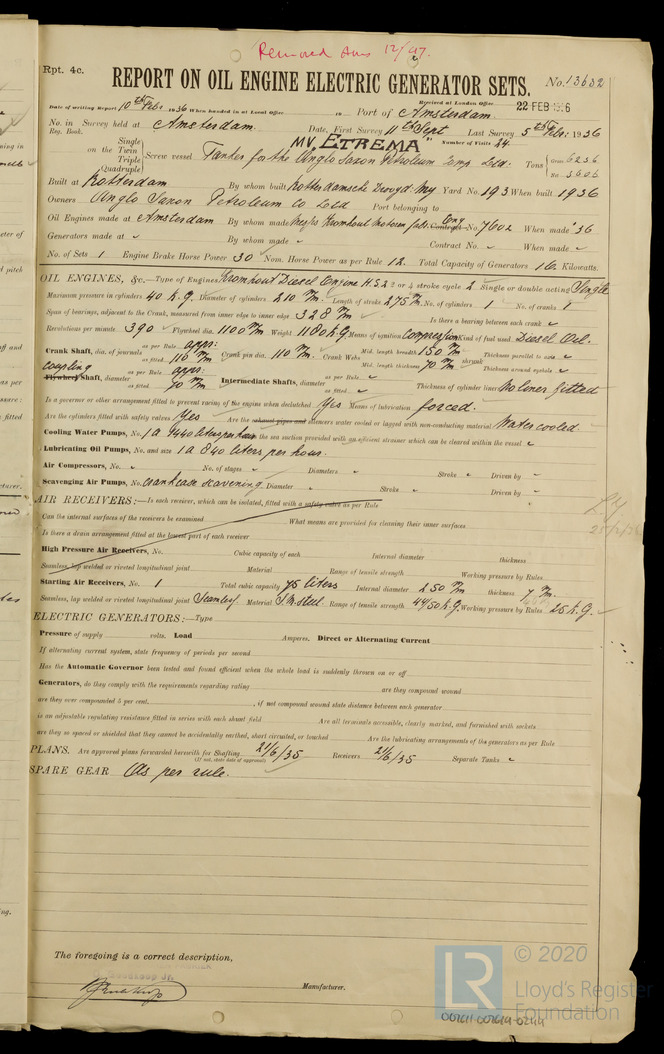 Removed 12/47.
Rpt. 4c.
REPORT ON OIL ENGINE ELECTRIC GENERATOR SETS.
No. 13632
Received at London Office
22 FEB 1936
Date of writing Report 10th Feb. 1936 When handed in at Local Office 19 Port of Amsterdam.
No. in Survey held at Amsterdam. Date, First Survey 11th Sept Last Survey 5th Feb: 1936
Reg. Book. Number of Visits 24
MV. "ETREMA"
Single
on the Twin
Triple
Quadruple
Screw vessel Tanker for the Anglo Saxon Petroleum Comp Ltd. Tons Gross 6236
Net 3606
Built at Rotterdam By whom built Rotterdamsche Droogd. My Yard No. 193 When built 1936
Owners Anglo Saxon Petroleum Co Ltd Port belonging to
Oil Engines made at Amsterdam By whom made Kromhout Motoren Eng. Contract No. 7602 When made '36
Generators made at By whom made Contract No. When made
No. of Sets 1 Engine Brake Horse Power 30 Nom. Horse Power as per Rule 12. Total Capacity of Generators 16 Kilowatts.
OIL ENGINES, &c.—Type of Engines Kromhout Diesel Engine H.S.2 2 or 4 stroke cycle 2 Single or double acting Single
Maximum pressure in cylinders 40 k.g. Diameter of cylinders 210 m/m. Length of stroke 275 m/m. No. of cylinders 1 No. of cranks 1
Span of bearings, adjacent to the Crank, measured from inner edge to inner edge 328 m/m Is there a bearing between each crank
Revolutions per minute 390 Flywheel dia. 1100 m/m Weight 1180 k.g. Means of ignition compression Kind of fuel used Diesel Oil.
Crank Shaft, dia. of journals as per Rule appr: as fitted 116 m/m Crank pin dia. 110 m/m. Crank Webs Mid. length breadth 150 m/m Mid. length thickness 70 m/m shrunk Thickness parallel to axis Thickness around eyehole
coupling
Flywheel Shaft, diameter as per Rule appr: as fitted 70 m/m Intermediate Shafts, diameter as per Rule as fitted Thickness of cylinder liners No liner fitted
Is a governor or other arrangement fitted to prevent racing of the engine when declutched Yes Means of lubrication forced.
Are the cylinders fitted with safety valves Yes Are the exhaust pipes and silencers water cooled or lagged with non-conducting material Water cooled.
Cooling Water Pumps, No. 1 a 1440 liters per hour Is the sea suction provided with an efficient strainer which can be cleared within the vessel
Lubricating Oil Pumps, No. and size 1 a 840 liters per hour.
Air Compressors, No. No. of stages Diameters Stroke Driven by
Scavenging Air Pumps, No. crankcase scavening. Diameter Stroke Driven by
AIR RECEIVERS:—Is each receiver, which can be isolated, fitted with a safety valve as per Rule
Can the internal surfaces of the receivers be examined What means are provided for cleaning their inner surfaces
Is there a drain arrangement fitted at the lowest part of each receiver
High Pressure Air Receivers, No. Cubic capacity of each Internal diameter thickness
Seamless, lap welded or riveted longitudinal joint Material Range of tensile strength Working pressure by Rules
Starting Air Receivers, No. 1 Total cubic capacity 75 liters Internal diameter 250 m/m thickness 7 m/m.
Seamless, lap welded or riveted longitudinal joint Seamless Material S.M. steel. Range of tensile strength 44/50 k.g. Working pressure by Rules 25 k.g.
ELECTRIC GENERATORS:—Type
Pressure of supply volts. Load Amperes. Direct or Alternating Current
If alternating current system, state frequency of periods per second
Has the Automatic Governor been tested and found efficient when the whole load is suddenly thrown on or off
Generators, do they comply with the requirements regarding rating are they compound wound
are they over compounded 5 per cent. , if not compound wound state distance between each generator
is an adjustable regulating resistance fitted in series with each shunt field Are all terminals accessible, clearly marked, and furnished with sockets
are they so spaced or shielded that they cannot be accidentally earthed, short circuited, or touched Are the lubricating arrangements of the generators as per Rule
PLANS. Are approved plans forwarded herewith for Shafting 21/6/35 Receivers 21/6/35 Separate Tanks
(If not, state date of approval)
SPARE GEAR As per rule.
The foregoing is a correct description,
Manufacturer.
© 2020
LR
Lloyd's Register
Foundation